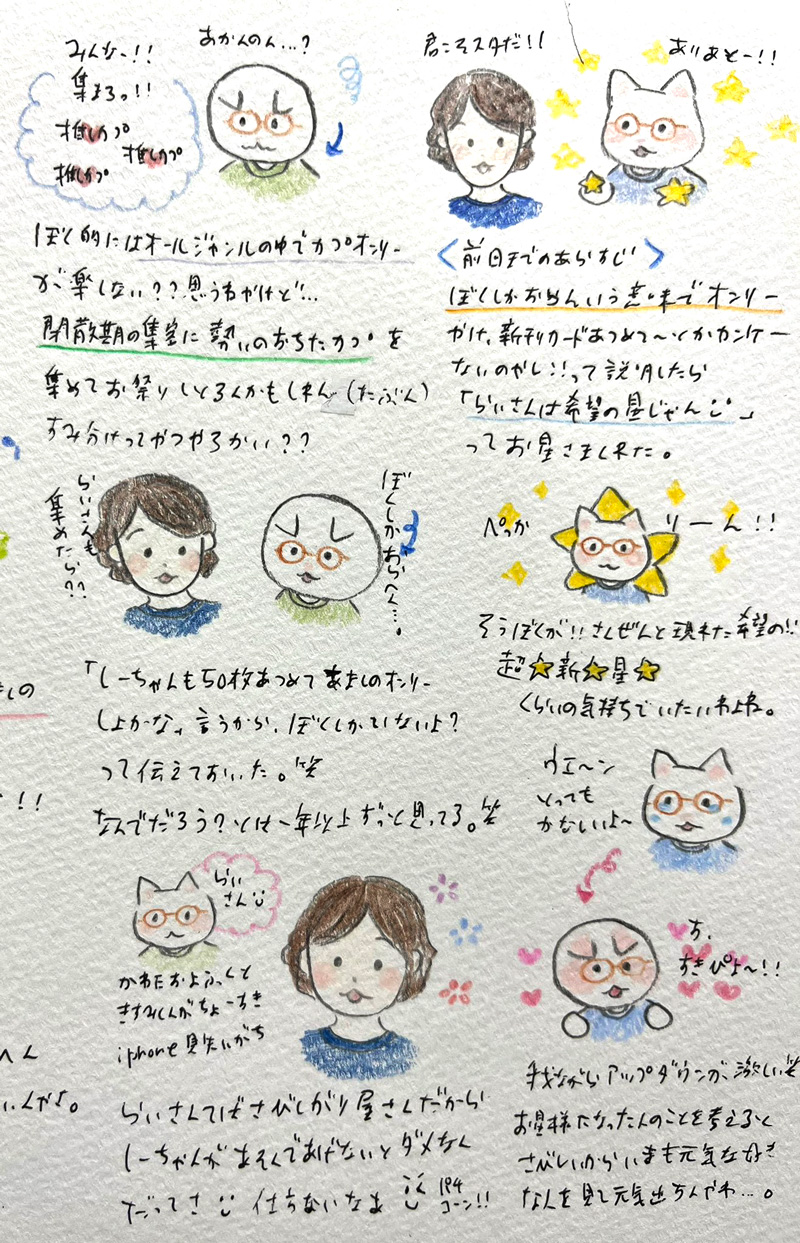 みんなー!!
集まろっ!!
推しカプ
推しカプ
推しカプ
あかんのん…?
ぼく的にはオールジャンルの中でカプオンリー
が楽しない??思うねけど…
閉散期の集客に勢いのおちたカプを
集めてお祭りしとるんかもしれん(たぶん)
すみ分けってやつやろかい??
らいさんも
集めたら??
ぼくしかおらへん…。
「しーちゃんも50枚あつめてあましのオンリー
しよかな」言うから、ぼくしかいないよ?
って伝えておいた。笑
なんでだろう?とは一年以上ずっと見ってる。笑
らい
さん
かわたおふふくと
きすみくんがちょーすき
iphone見失いがち
らいさんてばさびしがり屋さんだから
しーちゃんがあそんであげないとダメなん
だってさ 仕方ないなぁ
194
コーン!!
君こそスタだ!!
ありあとー!!
〈前日までのあらすじ〉
ぼくしかおらんいう意味でオンリー
かけ、新刊カードあつめて〜とかカンケー
ないのやし!!って説明したら
「らいさんは希望の星じゃん」
ってお星さまされた。
ぺっか
りーん!!
そうぼくが!!さんぜんと現れた希望の!!
超★新★星★
くらいの気持ちでいたいわよね。
ウエ〜ン
とっても
かなしいよ〜
す、
すきぴよ〜!!
我ながらアップダウンが激しい笑
お星様になった人のことを考えると
さびしいからいまも元気な好き
なんを見て元気出るんやわ…。